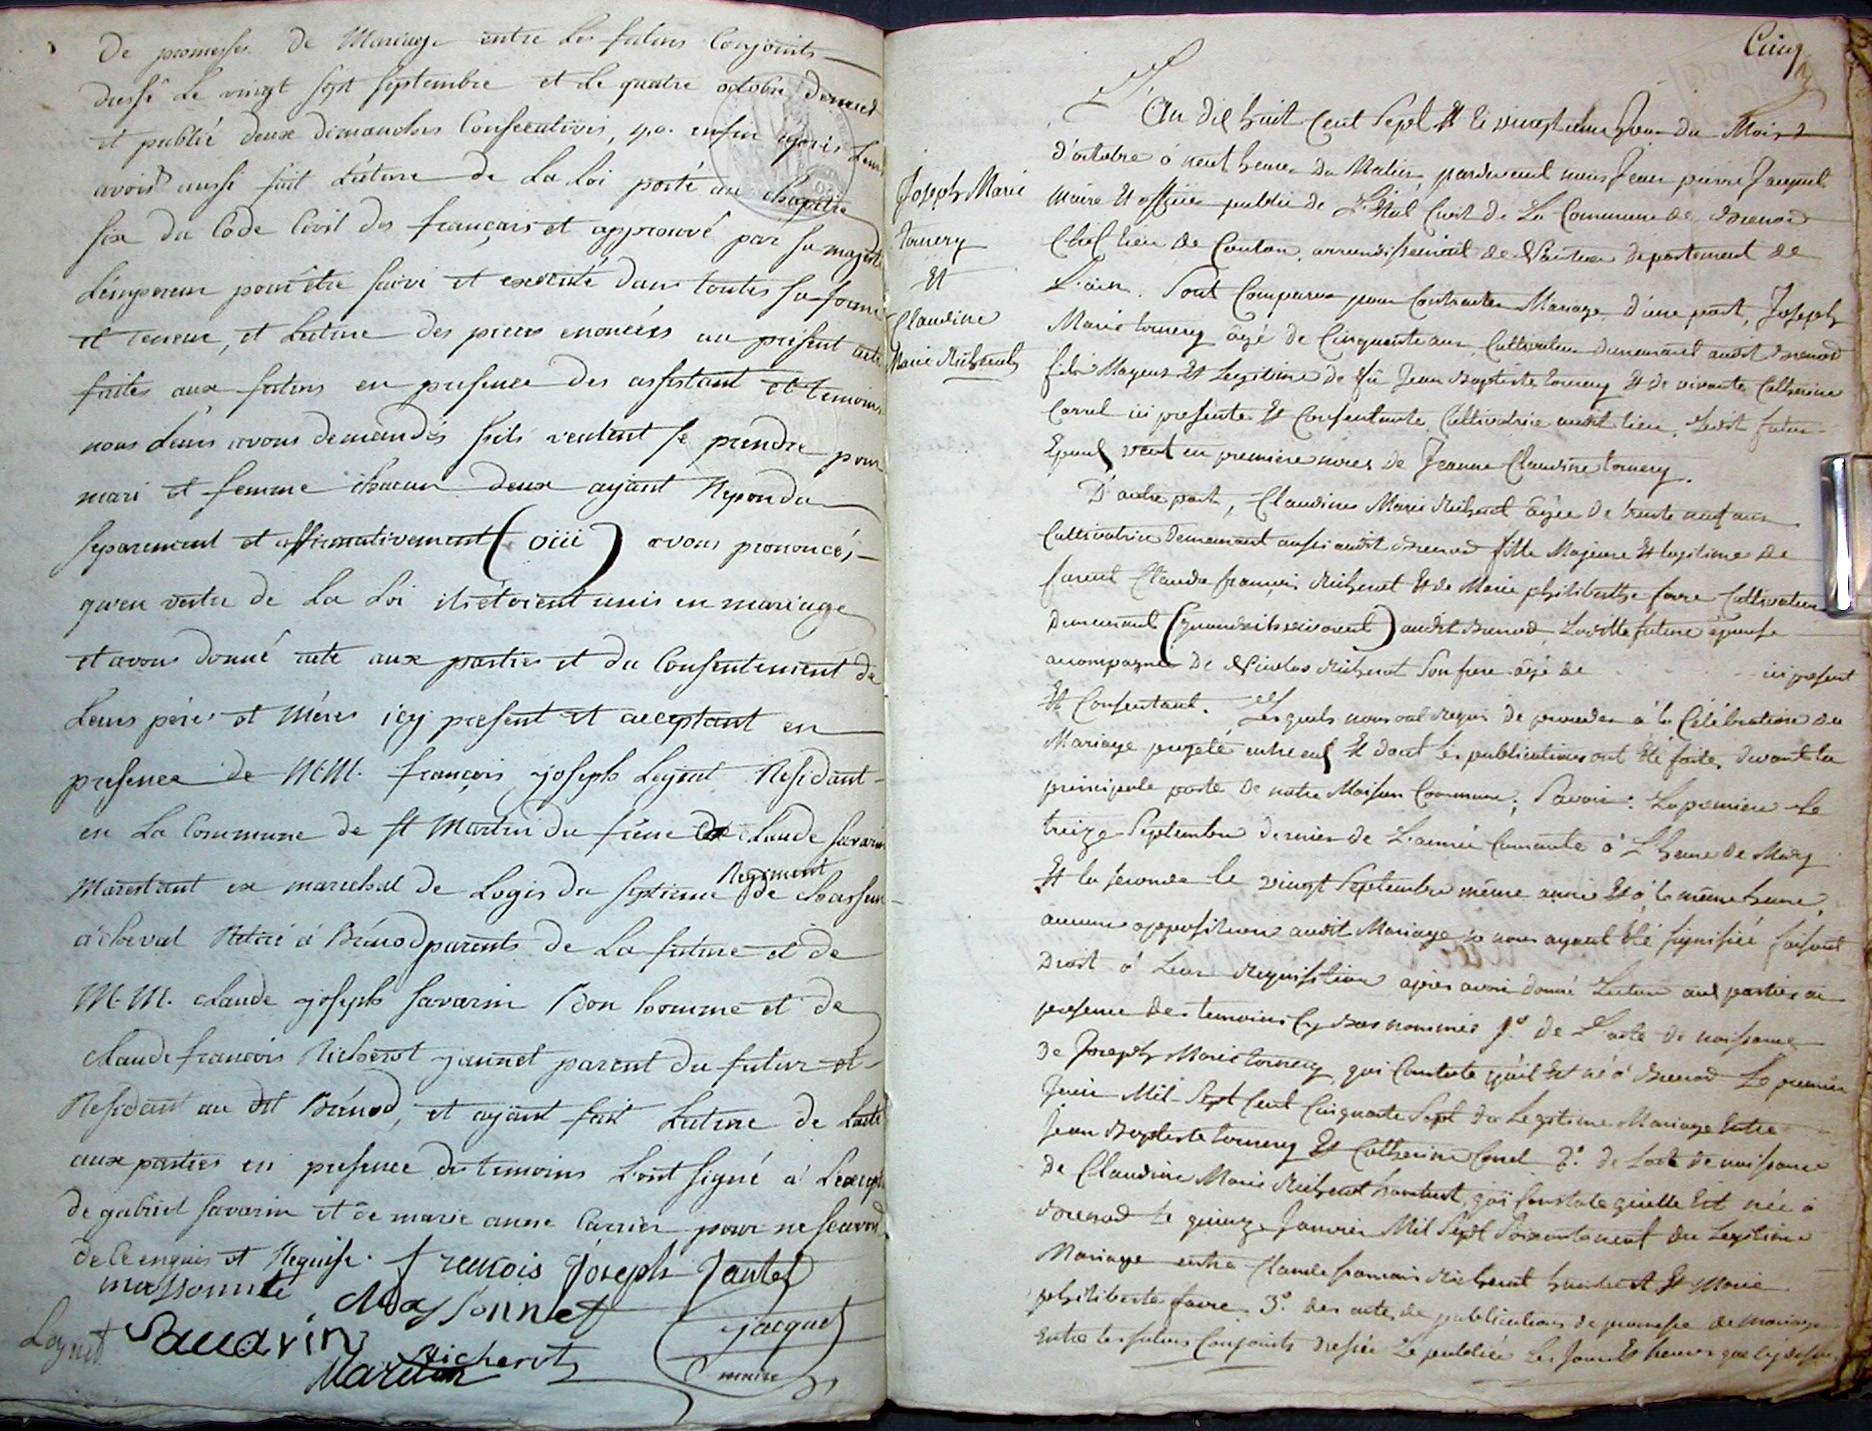 De promesses de Mariage entre les futurs Conjoints
dressé Le vingt sept septembre et Le quatre octobre dernier
et publié deux dimanches Consecutives, 4o. enfin après Leurs
avoir aussi fait Lecture de La Loi porté au chapitre
six du Code Civil des français et approuvé par sa majesté
L'empereur pour être suivi et executé dans toutes sa forme
et teneur, et Lecture des pieces enoncées au présent acte
faites aux futurs en presence des assistant et temoins
nous Leurs avons demandés s'ils veulent se prendre pour
mari et femme chacun deux ayant Repondu
separement et affirmativement (oüi) avons prononcés
qu'en vertu de La Loi ils étoient unis en mariage
et avons donné acte aux parties et du Consentement de
Leurs péres et Méres icy present et acceptant en
presence de M.M. françois joseph Leynet Residant
en La Commune de st Martin du frêne de Claude savarin
Marestant ex marechal de Logis du septieme Regiment de chasseur
à cheval Retiré à Brénod parents de La future et de
M.M. claude joseph savarin Bon homme et de
claude francois Richerot jaunet parent du futur et
Residant au dit Brénod, et ayant fait Lecture de Lacte
aux parties en presence des temoins L'ont signé à L'except
de gabriel savarin et de marie anne Carrier pour ne scavoir
de Ce enquis et Requise. francois joseph Jantet
massonnete Massonnet
Leynet Savarin jacquet
Richerot maire
Cinq
Joseph Marie
Tornery
Et
Claudine
Marie Richerot
L'An dix huit Cent Sept Et le vingt du Mois
d'octobre à neuf heures du Matin, pardevant nous Jean pierre Jacquet
Maire Et officier public de L'Etat Civil de La Commune de Brenod
Chef lieu de Canton, arrondissement de Nantua departement de
L'ain. Sont Comparus pour Contracter Mariage d'une part, Joseph
Marie tornery âgé de Cinquante ans Cultivateur demeurant audit Brenod
fils Majeur Et Legitime de fû Jean Baptiste tornery Et de vivante Catherine
Carrel ici presente Et Consentante, Cultivatrice audit lieu, Ledit futur
Epoux veuf en premiere noces de Jeanne Claudine tornery.
D'autre part, Claudine Marie Richerot âgée de trente neuf ans
Cultivatrice demeurant aussi audit Brenod fille Majeure Et legitime de
furent Claude françois Richerot Et de Marie philiberthe favre Cultivateurs
Demeurant (quand ils vivoient) audit Brenod Ladite future épouse
accompagnée De Nicolas Richerot Son frere âgé de ici present
Et Consentant. Lesquels nous ont Requis de proceder à la Célébration du
Mariage projeté entre eux Et dont les publications ont Eté faite, devant la
principale porte De notre Maison Commune; Savoir: La premiere Le
treize Septembre dernier de L'année Courante à L'heure de Midy
Et la seconde le vingt Septembre même année Et à la même heure,
aucune opposition audit Mariage ne nous ayant Eté signifiée faisant
Droit à Leur Requisition après avoir donné Lecture aux parties en
presence des temoins Cy bas nommés 1°. de L'acte de naissance
De Joseph Marie tornery qui Constate qu'il Est né à Brenod Le premier
Juin Mil Sept Cent Cinquante Sept du Legitime Mariage Entre
Jean Baptiste tornery Et Catherine Carrel 2°. de Lacte de naissance
De Claudine Marie Richerot qui Constate qu'elle Est née à
Brenod le quinze Janvier Mil Sept Soixante neuf du Legitime
Mariage entre Claude francois Richerot Et Marie
philiberte favre. 3°. des actes de publications de promesse de mariage
Entre les futurs Conjoints dressée Et publiée Les Jours Et heures que cy dessus,